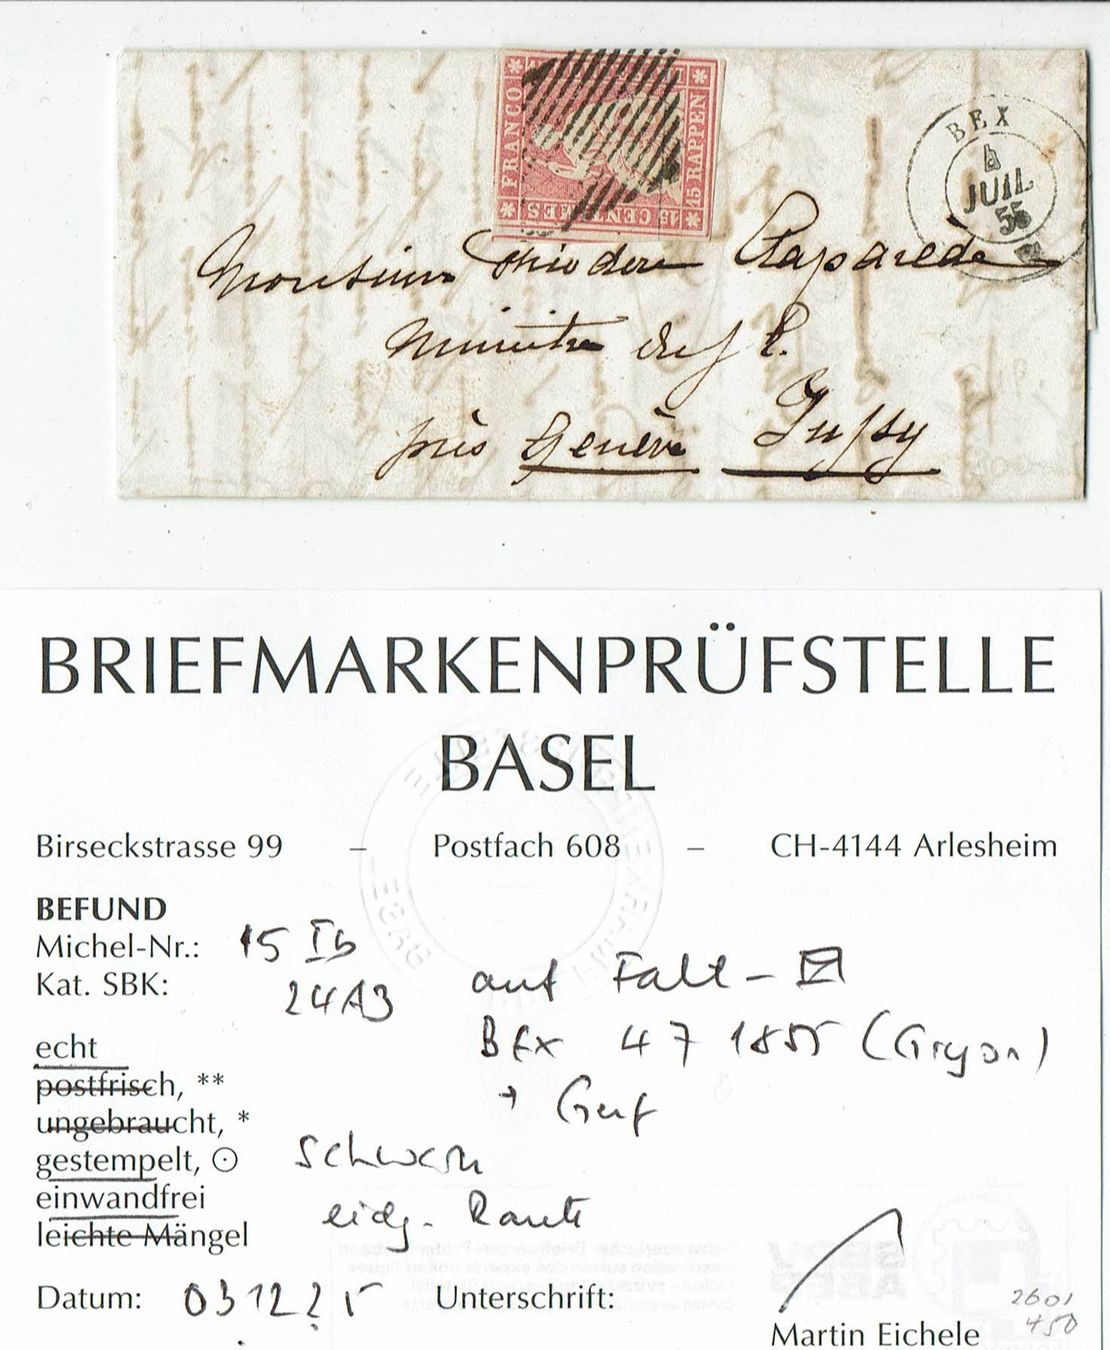 FRANCO
15 RAPPEN
15 CENTIMES
BEX
4
JUIL
55
Monsieur Théodore Claparède
Ministre du S. E.
près Genève Jussy
BRIEFMARKENPRÜFSTELLE
BASEL
Birseckstrasse 99 – Postfach 608 – CH-4144 Arlesheim
BEFUND
Michel-Nr.: 15 Ib
Kat. SBK: 24A3
auf Falt-
BEX 4 7 1855 (Gryon)
→ Genf
echt
postfrisch, **
ungebraucht, *
gestempelt, ⊙ schwarze
einwandfrei eidg. Raute
leichte Mängel
Datum: 03 12 2 5 Unterschrift:
Martin Eichele
2601
450